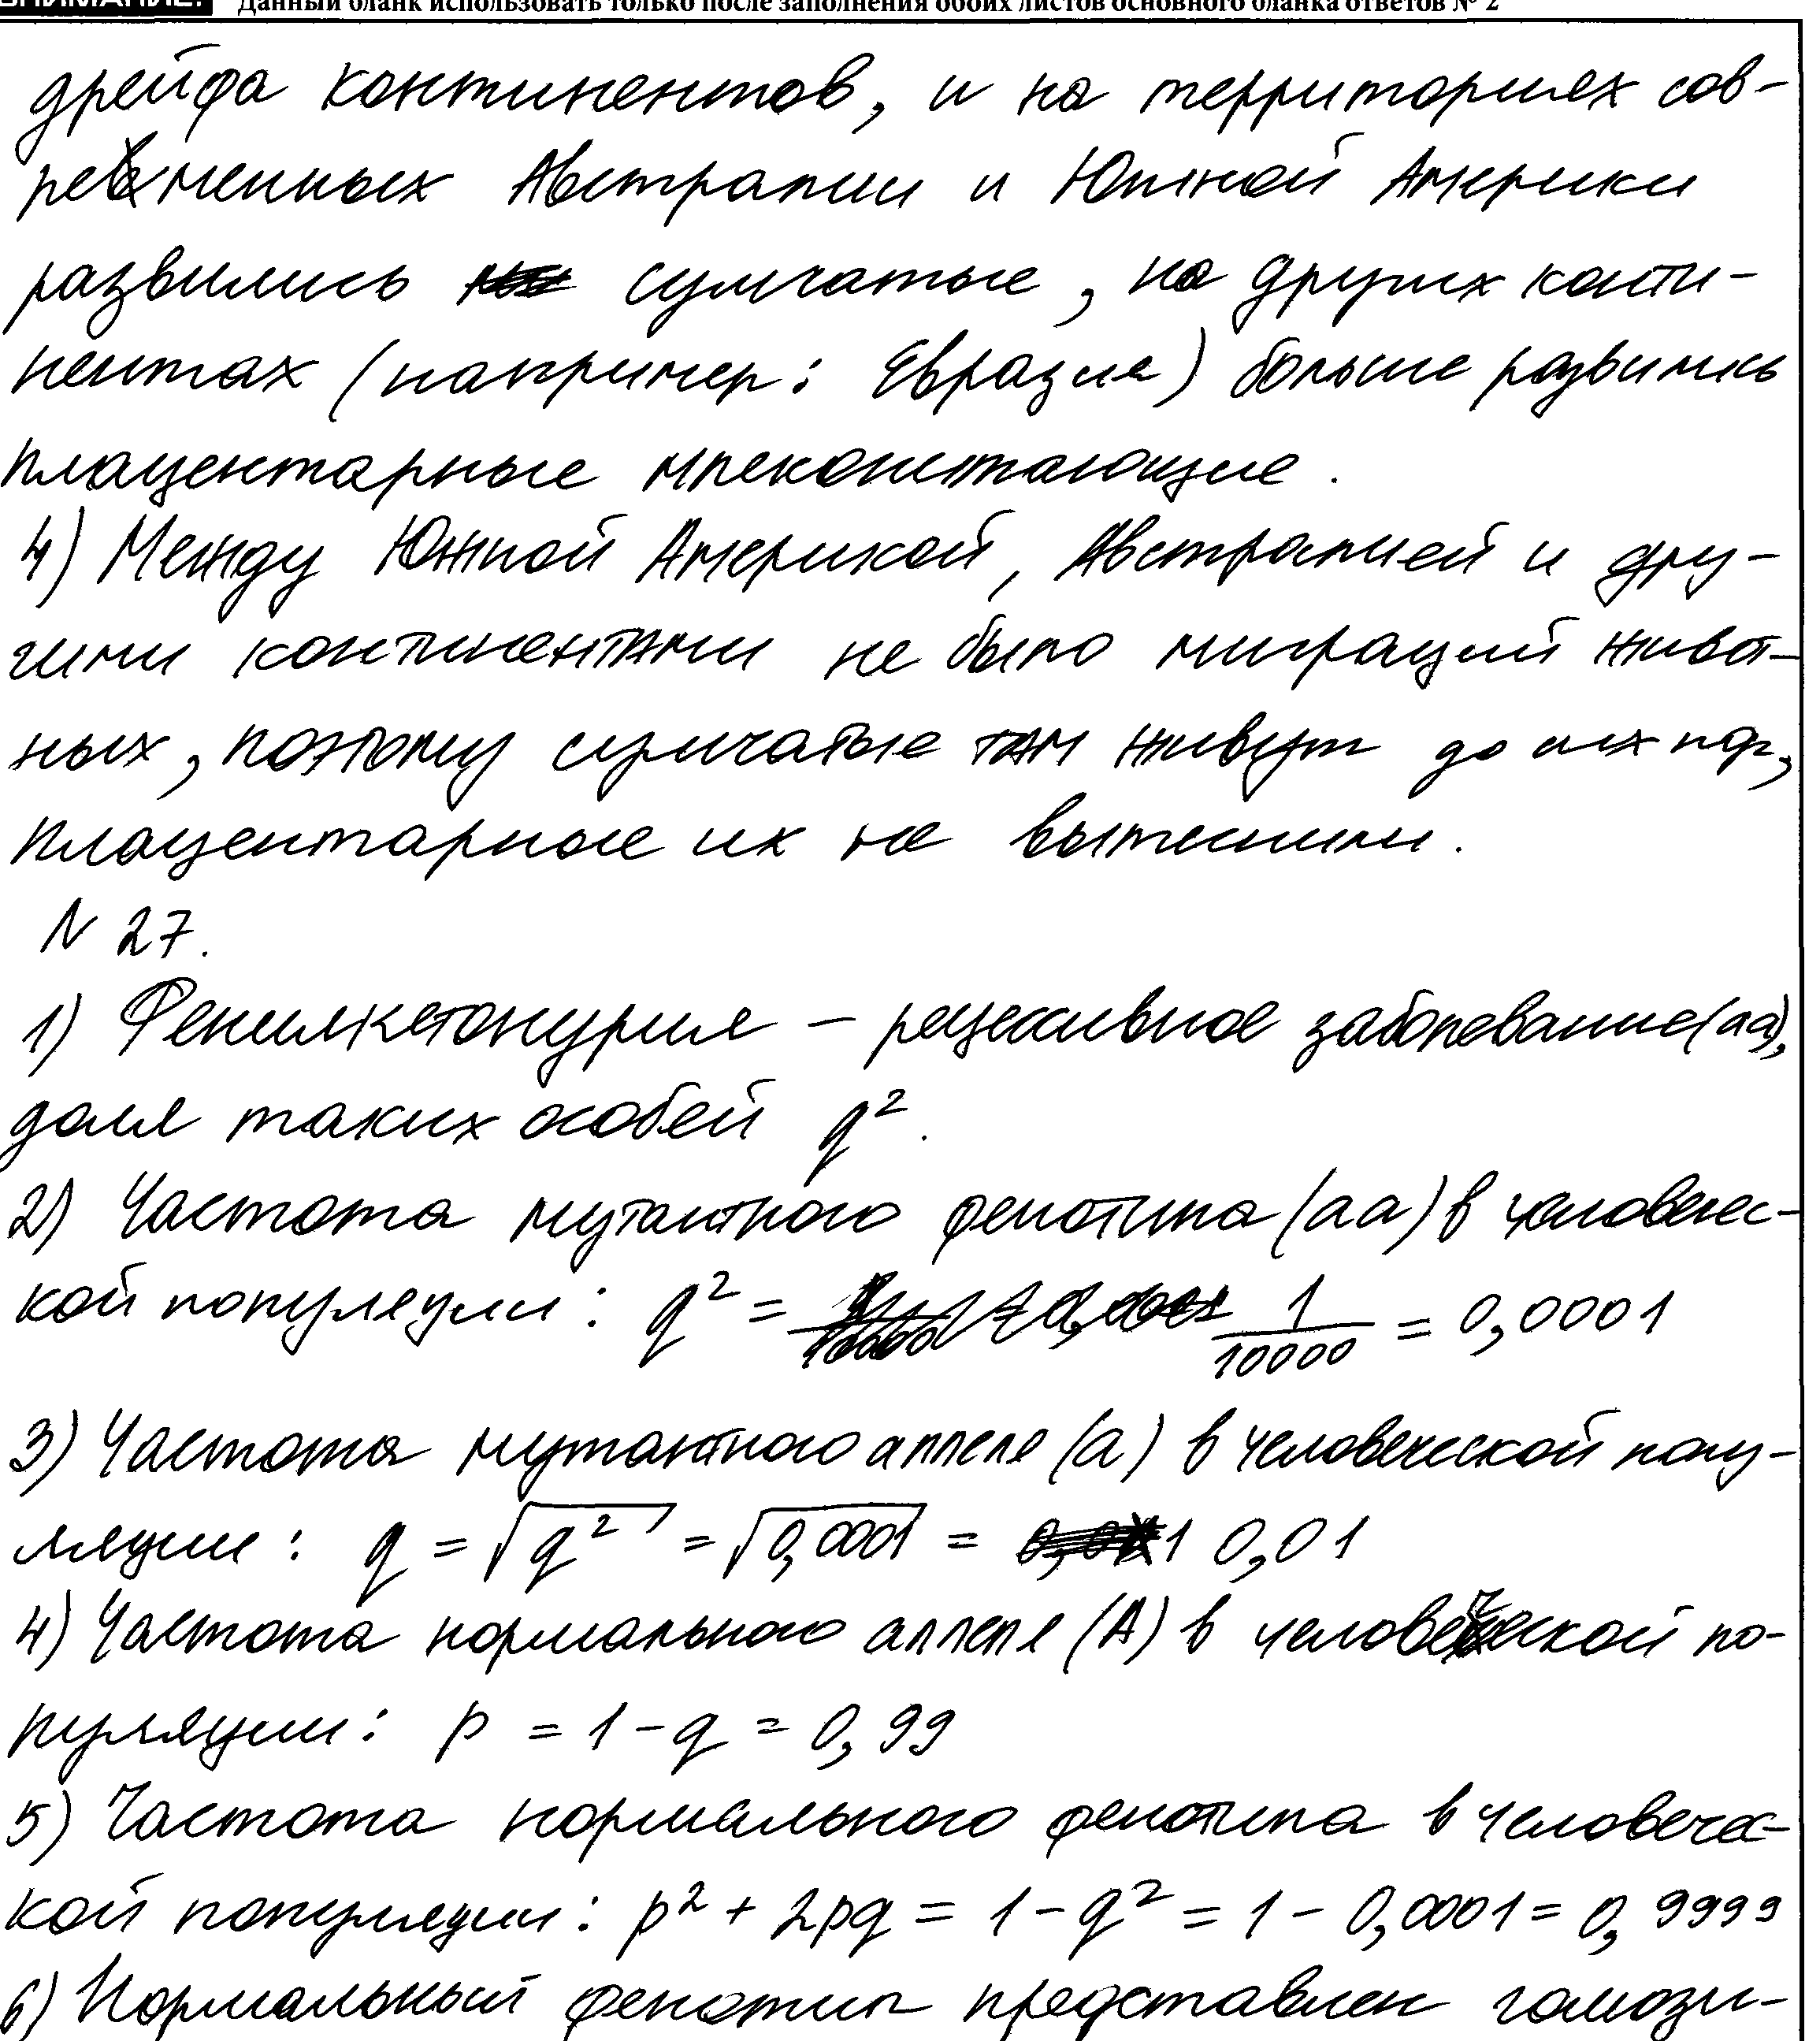 ВНИМАНИЕ! Данный бланк использовать только после заполнения обоих листов основного бланка ответов № 2
дрейфа континентов, и на территориях сов-
ременных Австралии и Южной Америки
развились сумчатые, на других конти-
нентах (например: Евразия) больше развились
плацентарные млекопитающие.
4) Между Южной Америкой, Австралией и дру-
гими континентами не было миграций живот-
ных, поэтому сумчатые там живут до сих пор,
плацентарные их не вытеснили.
N 27.
1) Фенилкетонурия – рецессивное заболевание (аа),
доля таких особей q².
2) Частота мутантного фенотипа (аа) в человечес-
кой популяции: q² = 1/10000 = 0,0001
3) Частота мутантного аллеля (а) в человеческой попу-
ляции: q = √q² = √0,0001 = 0,01
4) Частота нормального аллеля (А) в человеческой по-
пуляции: p = 1 - q = 0,99
5) Частота нормального фенотипа в человечес-
кой популяции: p² + 2pq = 1 - q² = 1 - 0,0001 = 0,9999
6) Нормальный фенотип представлен гомози-